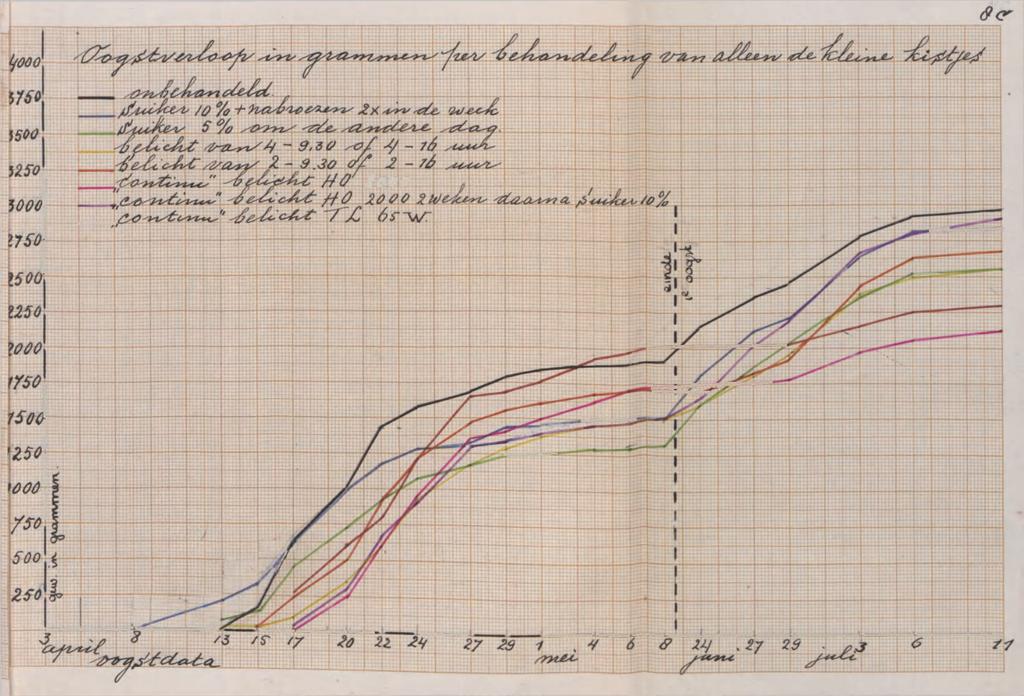 8c
Oogstverloop in grammen per behandeling van alleen de kleine kistjes
onbehandeld
Suiker 10% + nabroezen 2x in de week
Suiker 5% om de andere dag
belicht van 4-9.30 of 4-16 uur
belicht van 2-9.30 of 2-16 uur
"continu" belicht HO
"continu" belicht HO 2000 2 weken daarna Suiker 10%
"continu" belicht TL 65 W.
4000
3750
3500
3250
3000
2750
2500
2250
2000
1750
1500
1250
1000
750
500
250
gew. in grammen.
einde
1e oogst
3 8 13 15 17 20 22 24 27 29 1 4 6 8 24 27 29 3 6 11
april mei juni juli
oogstdata